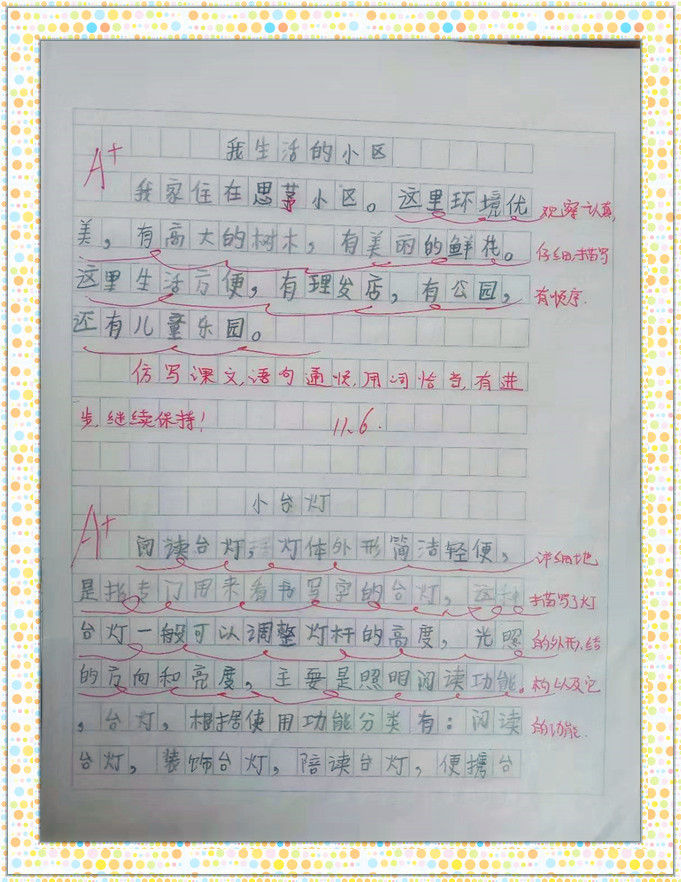 我生活的小区
A+
我家住在思茅小区。这里环境优
观察认真,
美，有高大的树木，有美丽的鲜花。
仔细,描写
这里生活方便，有理发店，有公园，
有顺序.
还有儿童乐园。
仿写课文,语句通顺,用词恰当,有进
步,继续保持!
11.6.
小台灯
A+
阅读台灯，灯体外形简洁轻便，
详细地
是指专门用来看书写字的台灯，这种
描写了灯
台灯一般可以调整灯杆的高度，光照
的外形,结
的方向和亮度，主要是照明阅读功能。
构以及它
，台灯，根据使用功能分类有：阅读
的功能.
台灯，装饰台灯，陪读台灯，便携台